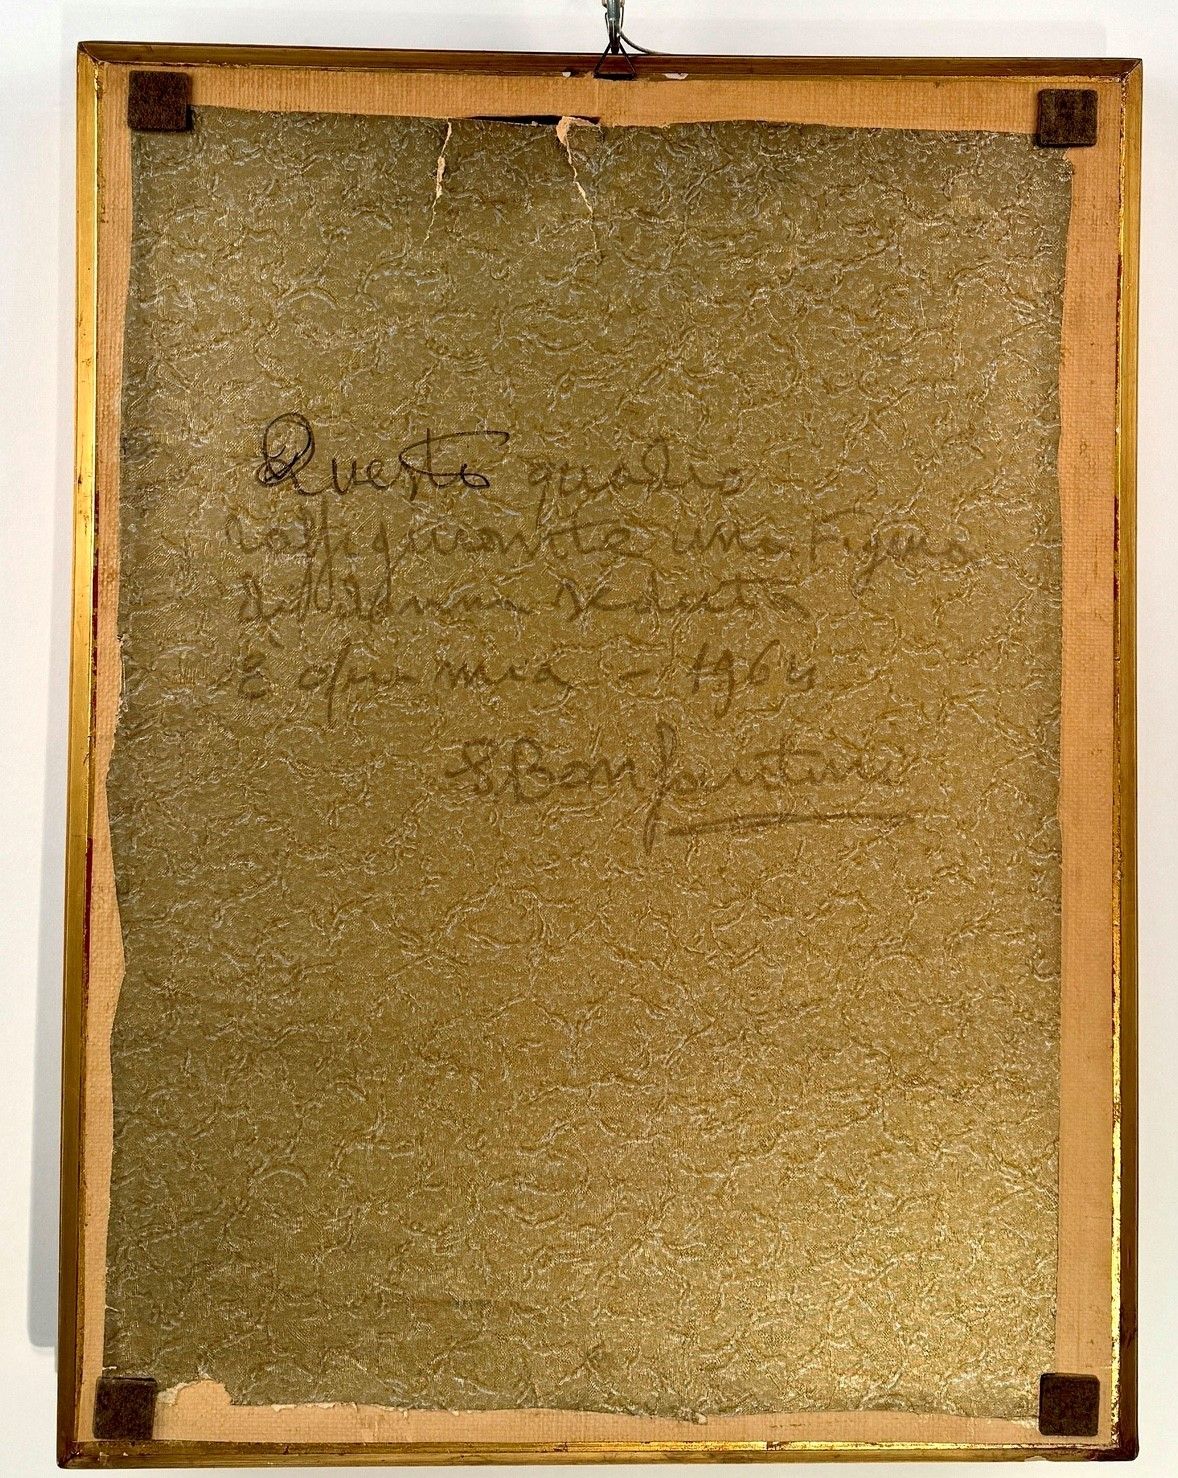 Questo quadro
raffigurante una Figura
di donna seduta
È opera mia - 1964
S. Bonfantini